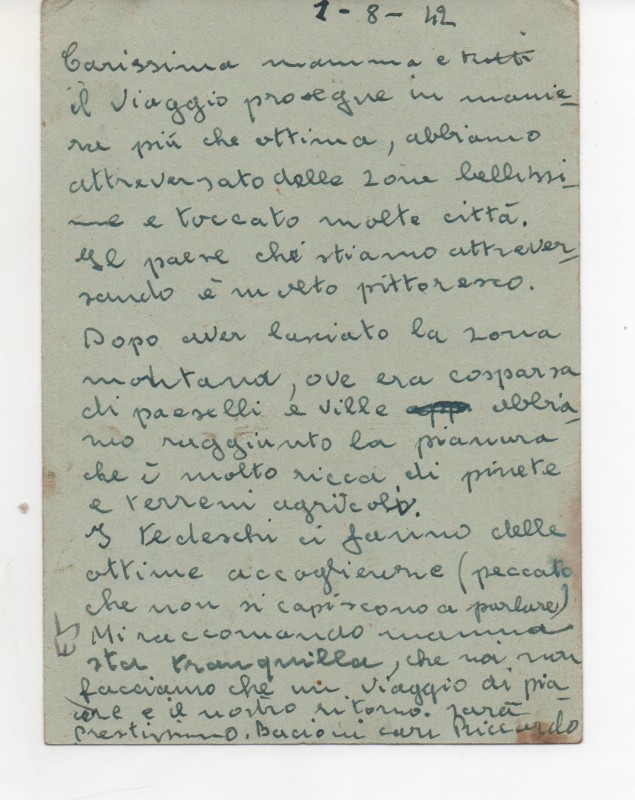 1-8-42
Carissima mamma e tutti
il viaggio prosegue in manie-
ra più che ottima, abbiamo
attraversato delle zone bellissi-
me e toccato molte città.
Il paese che stiamo attraver-
sando è molto pittoresco.
Dopo aver lasciato la zona
montana, ove era cosparsa
di paeselli e ville abbia-
mo raggiunto la pianura
che è molto ricca di pinete
e terreni agricoli.
I tedeschi ci fanno delle
ottime accoglienze (peccato
che non si capiscono a parlare)
Mi raccomando mamma
sta tranquilla, che noi non
facciamo che un viaggio di pia-
cere e il nostro ritorno sarà
prestissimo. Bacioni cari Riccardo